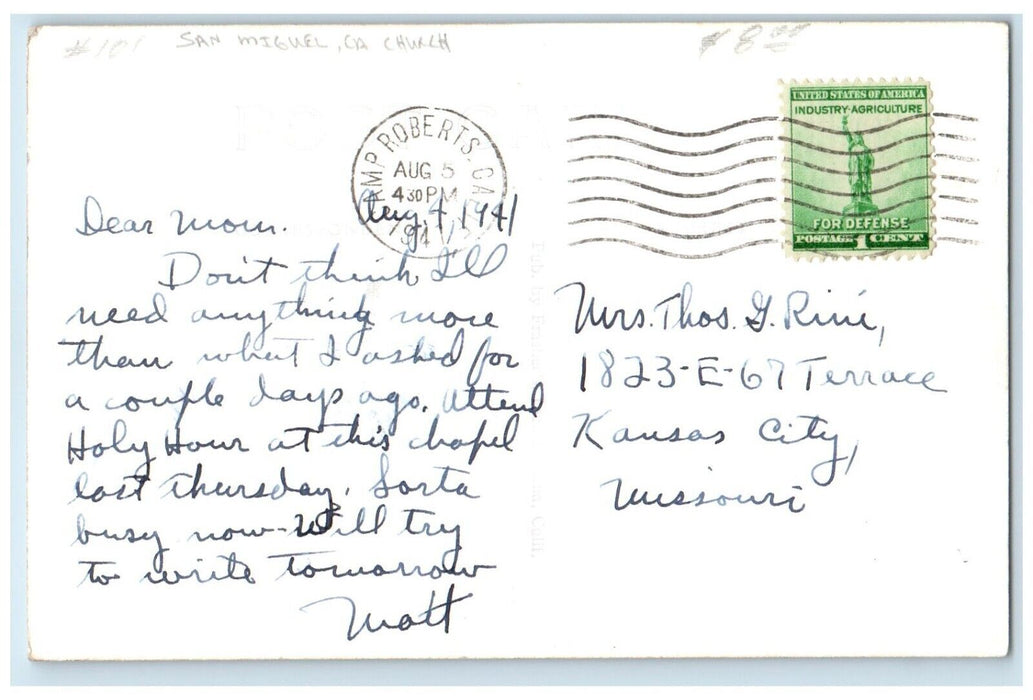 #101 SAN MIGUEL, CA CHURCH $8.00
CAMP ROBERTS, CAL.
AUG 5
4 30 PM
1941
UNITED STATES OF AMERICA
INDUSTRY·AGRICULTURE
FOR DEFENSE
POSTAGE 1 CENT
Aug 4, 1941
Dear Mom.
Don't think I'll
need anything more
than what I asked for
a couple days ago. Attend
Holy Hour at this chapel
last thursday. Sorta
busy now - Will try
to write tomorrow
Matt
Mrs. Thos. G. Rini,
1823-E-67 Terrace
Kansas City,
Missouri
Pub. by
Calif.